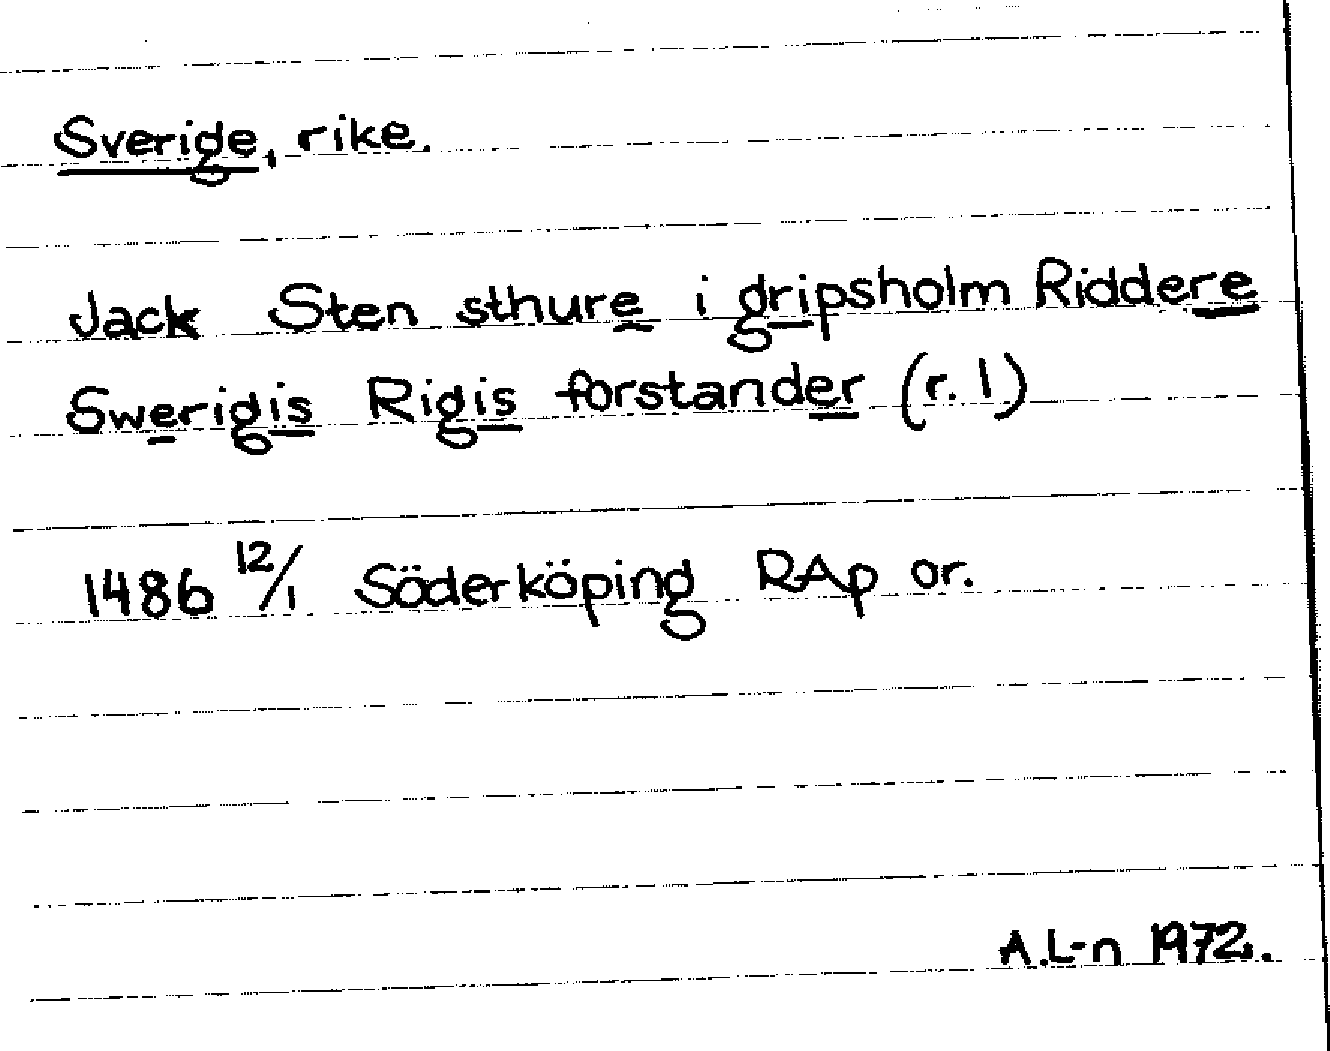 Sverige, rike.
Jack Sten sthure i gripsholm Riddere
Swerigis Rigis forstander (r. 1)
1486 12/1 Söderköping RAp or.
A.L-n 1972.